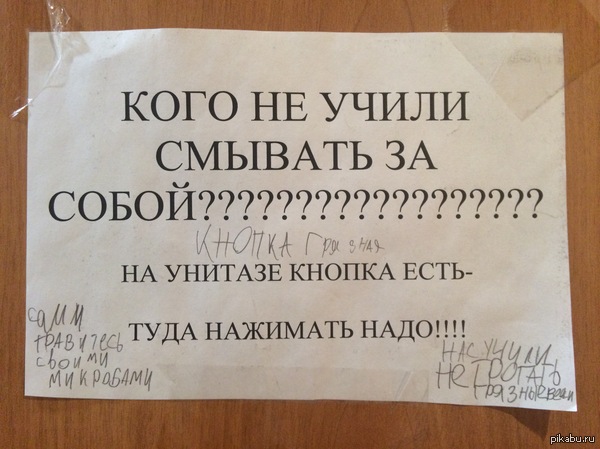 КОГО НЕ УЧИЛИ
СМЫВАТЬ ЗА
СОБОЙ??????????????????
КНОПКА грязная
НА УНИТАЗЕ КНОПКА ЕСТЬ-
ТУДА НАЖИМАТЬ НАДО!!!!
сАМИ
ТРАВИТЕСЬ
СВОИМИ
МИКРОБАМИ
НАС УЧИЛИ
НЕ ТРОГАТЬ
ГРЯЗНЫЕ вещи
pikabu.ru